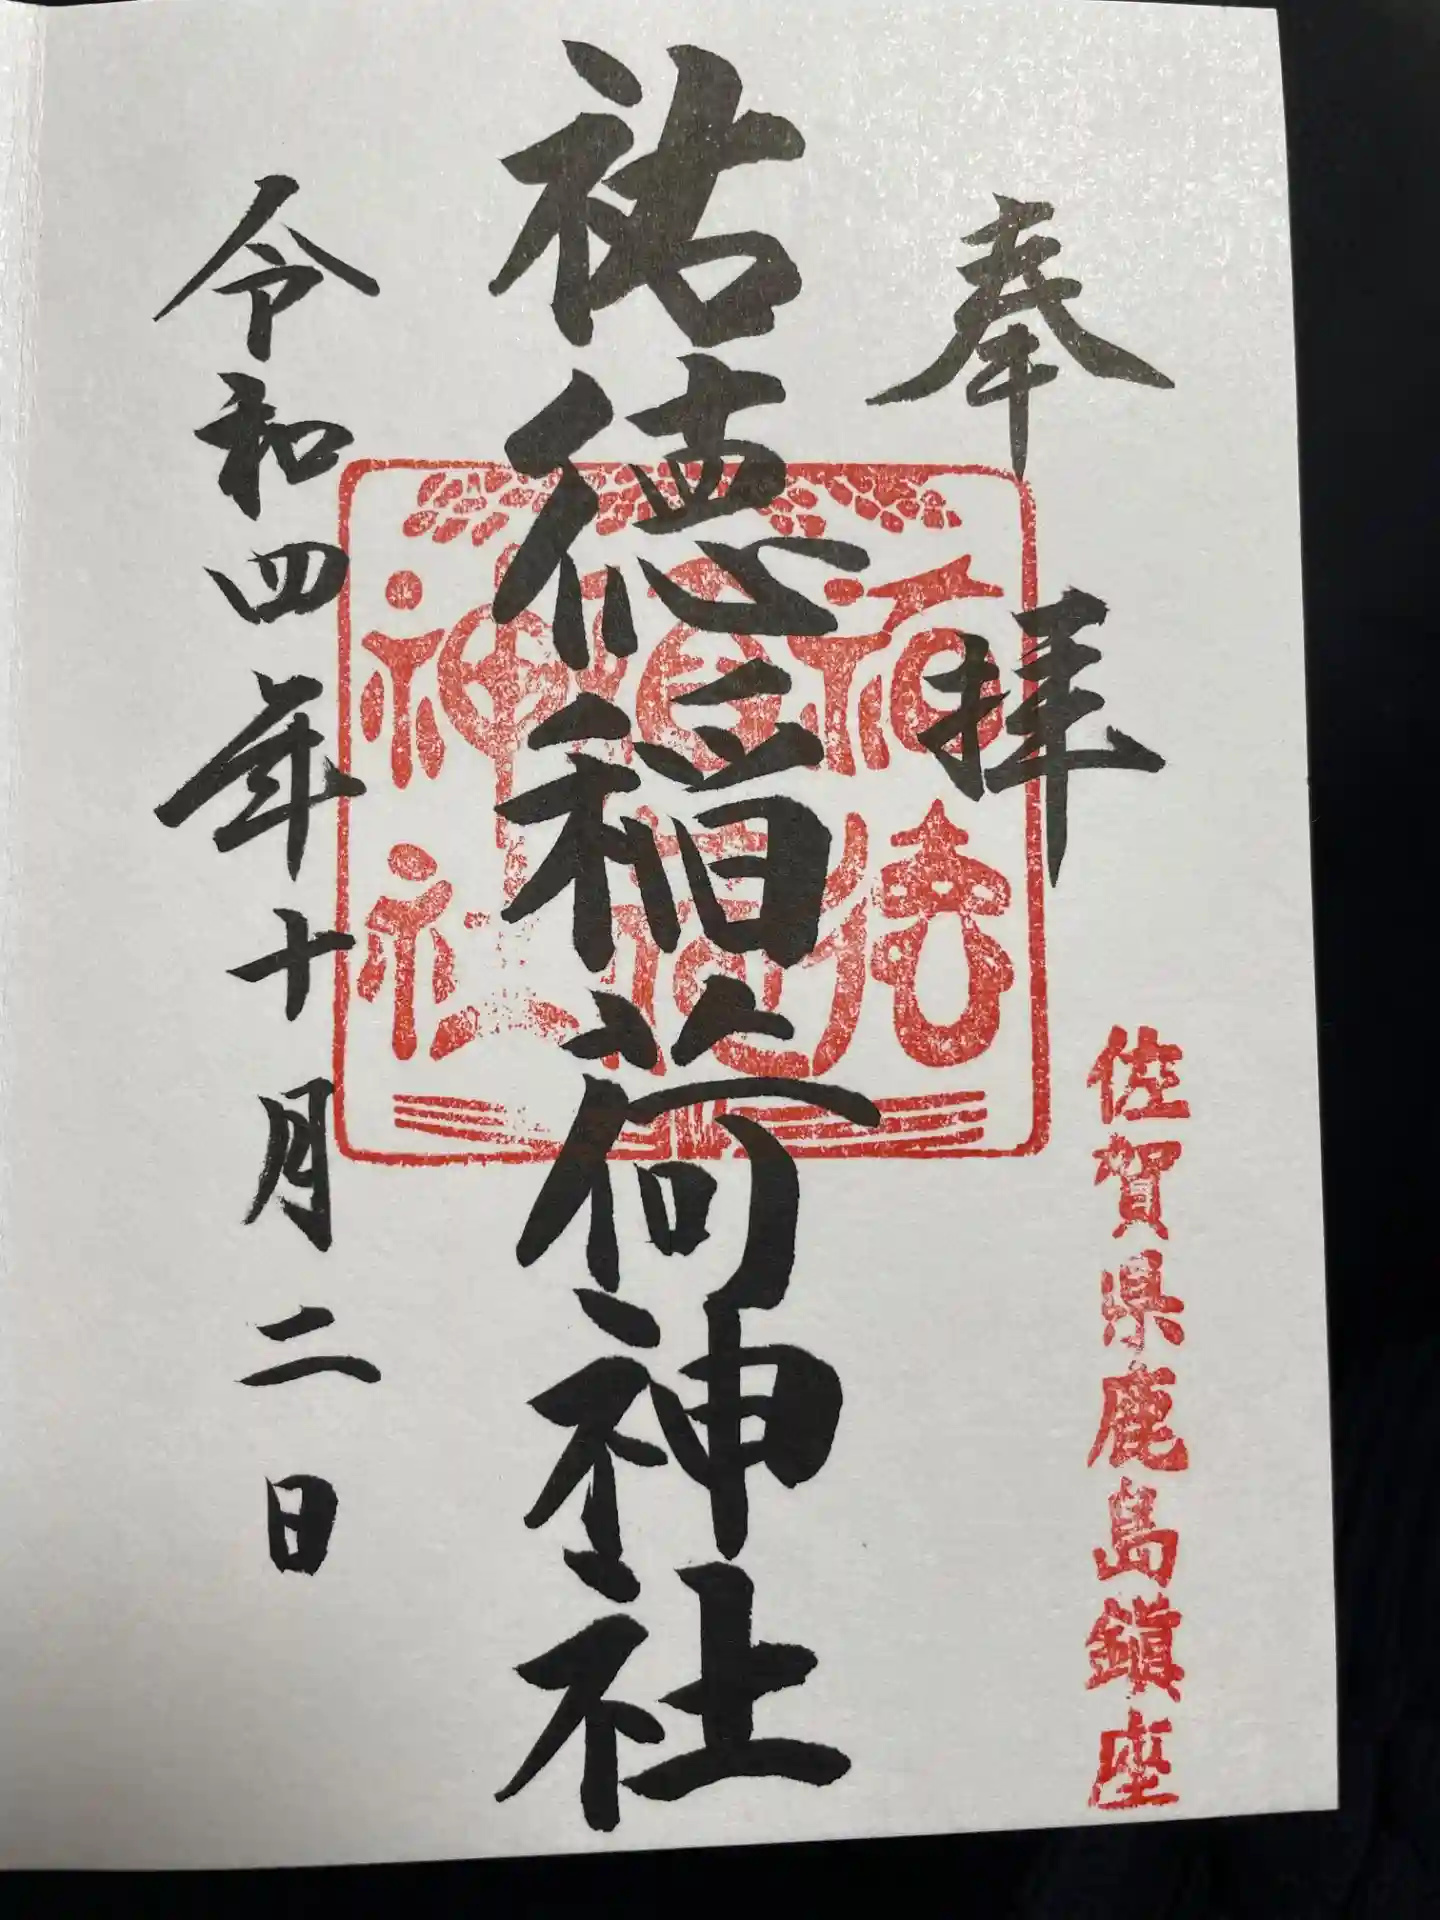 奉拝
佐賀県鹿島鎮座
祐徳稲荷神社
祐徳稲荷神社
令和四年十月二日